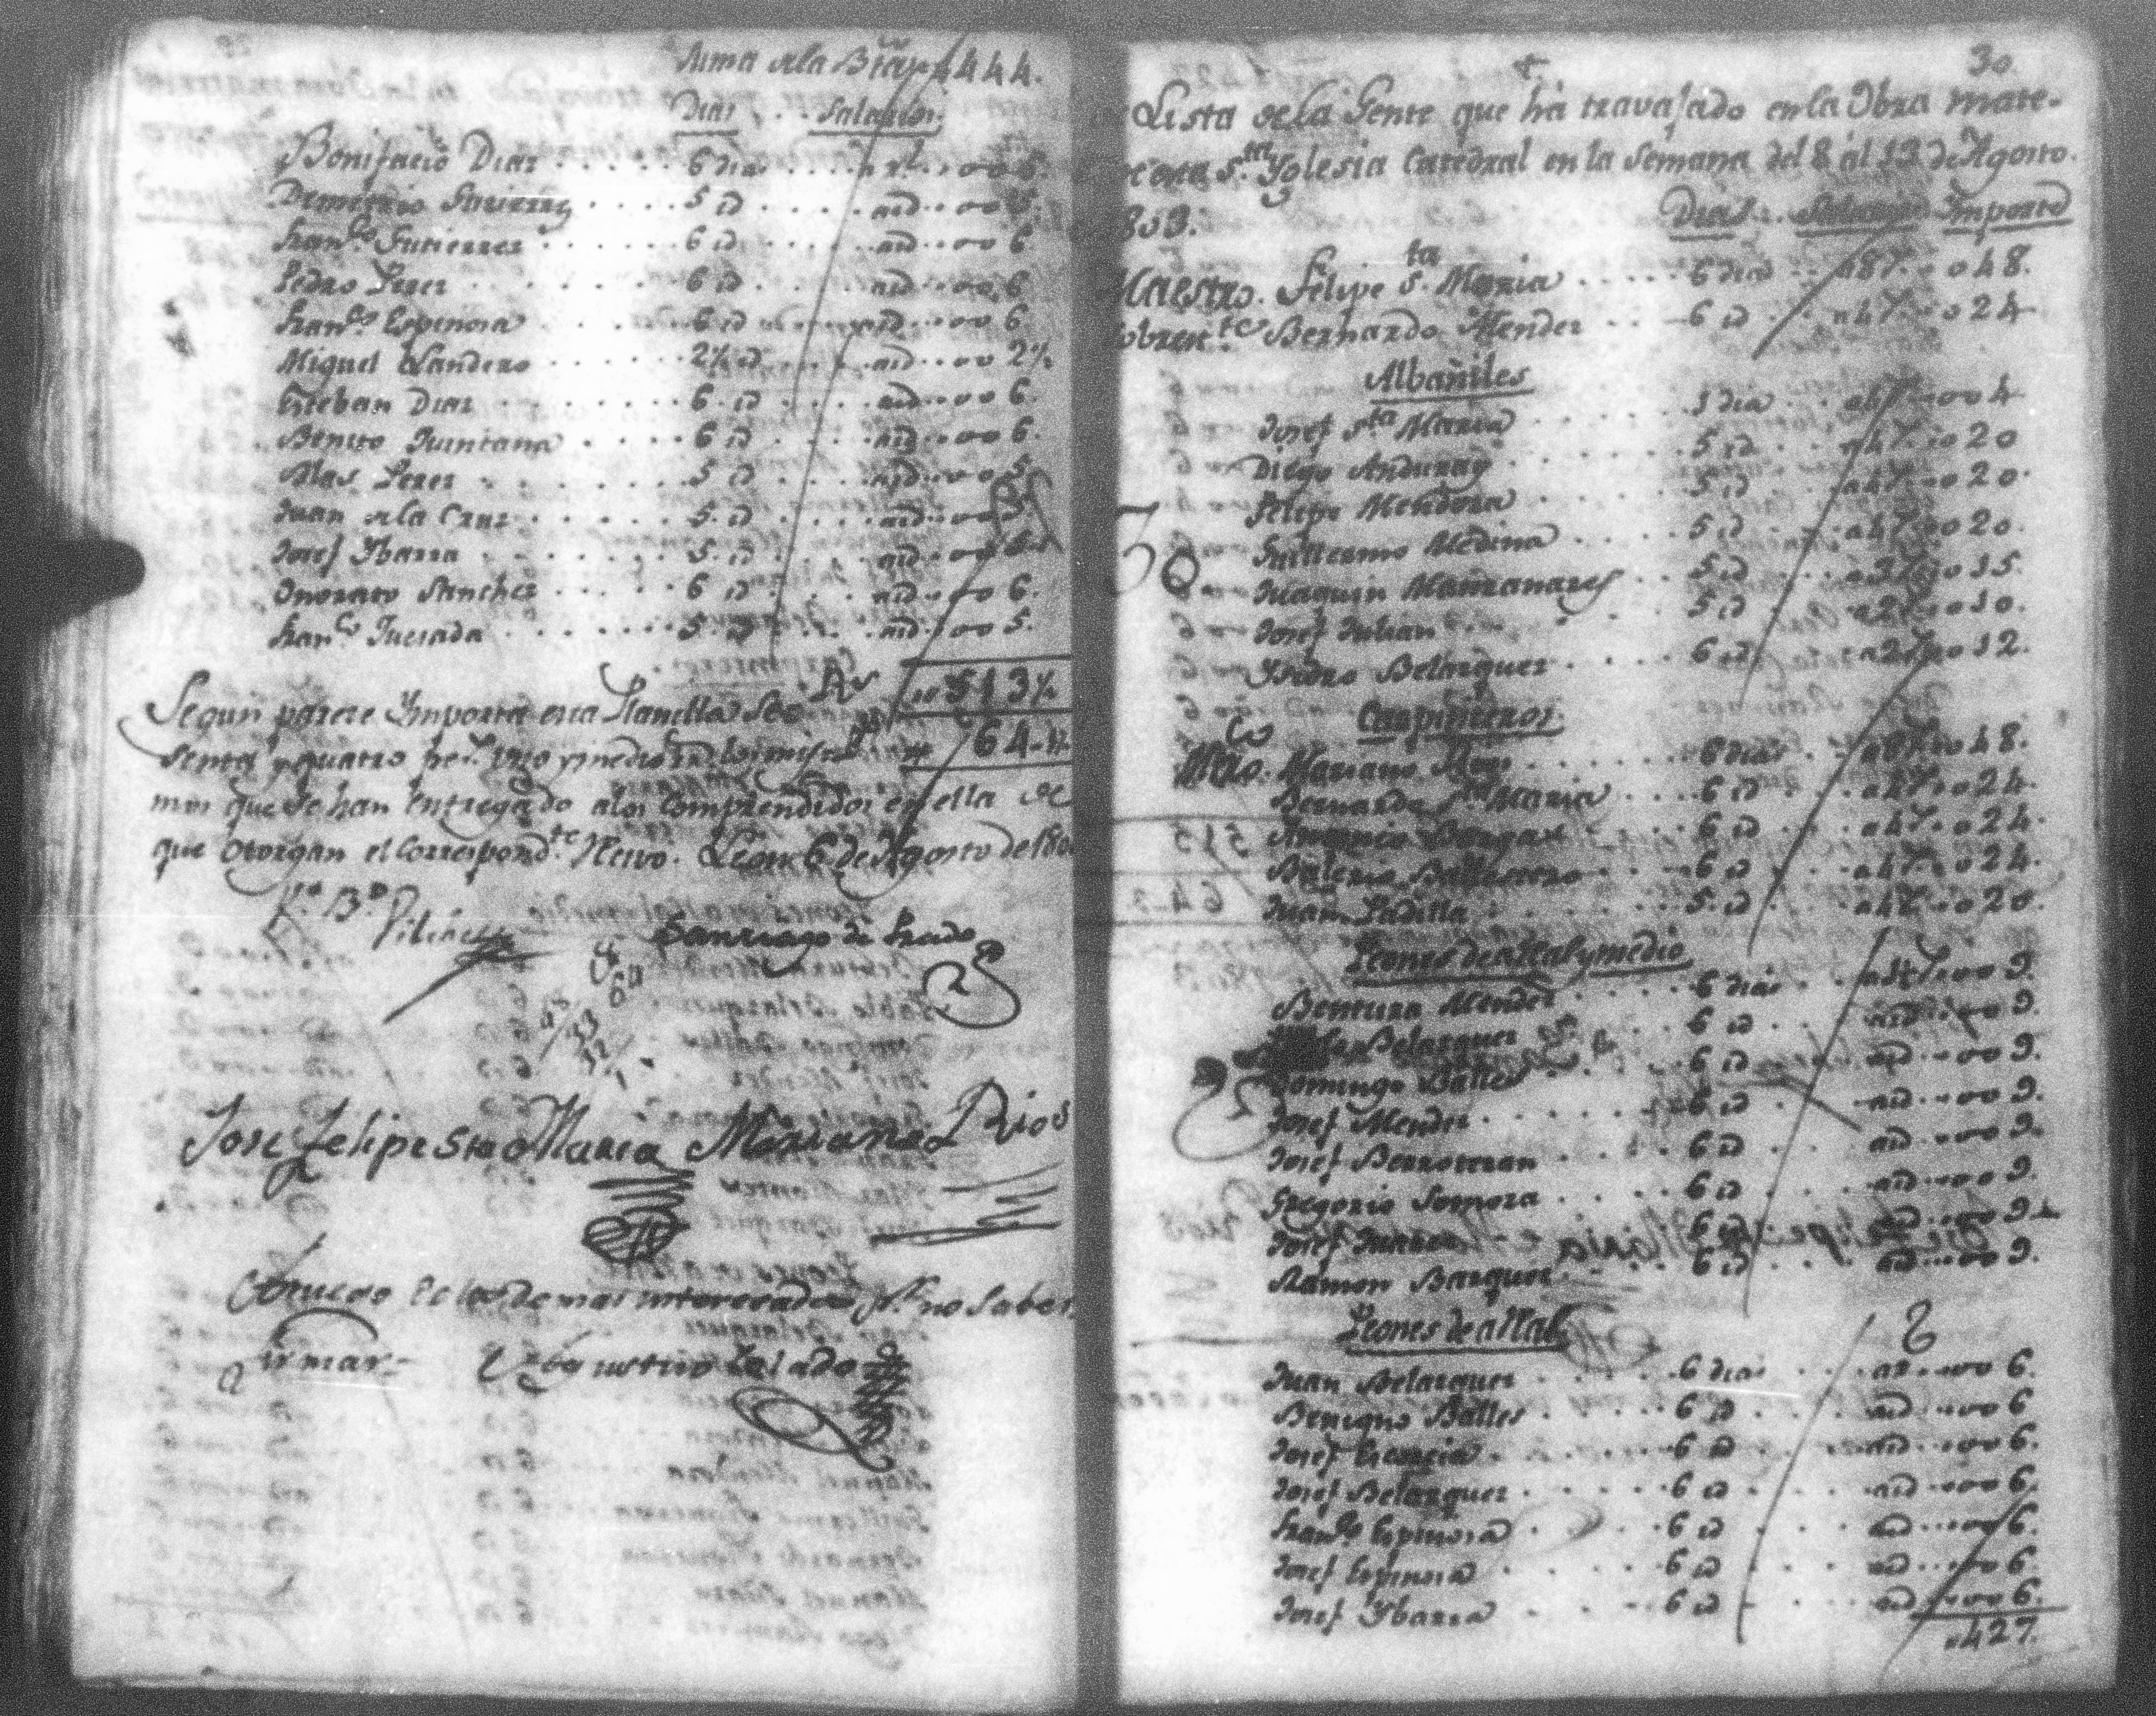 Suma de la Bta. 444.
Dias . . Salarios.
Bonifacio Diaz . . . . . 6 dias . . . . a rl. . . oo 6.
Demetrio Gutierrez . . . . 5 id . . . . aid . . oo 5.
Franco. Gutierrez . . . . . 6 id . . . . aid . . oo 6
Pedro Perez . . . . . . 6 id . . . . aid . . oo 6
Franco. Espinosa . . . . . 6 id . . . . aid . . oo 6
Miguel Landero . . . . . 2½ id . . . . aid . . oo 2½
Esteban Diaz . . . . . . 6 id . . . . aid . . oo 6.
Benito Quintana . . . . 6 id . . . . aid . . oo 6.
Blas Perez . . . . . . 5 id . . . . aid . . oo 5.
Juan de la Cruz . . . . . 5 id . . . . aid . . oo 5
Josef Ybarra . . . . . . 5 id . . . . aid . . oo
Onorato Sanchez . . . . . 6 id . . . . aid . . oo 6.
Franco. Quesada . . . . . 5 id . . . . aid . . oo 5.
Rs 513½
Segun parece Ymporta esta Planilla Se
senta y quatro ps. uno y medio rs. los mis 64-1½
mos que se han entregado a los Comprendidos en ella de
que otorgan el Correspondte. Recivo. Leon 6 de Agosto de
Vo. Bo.
Vilches
Santiago de Prado
Jose Felipe Sta Maria Mariano Rios
A ruego de los demas interesados pr. no saber
firmar- Agustin Salado
30
+
Lista de la Gente que há travajado en la Obra mate-
de esta Sta. Yglesia Catedral en la Semana del 8 al 13 de Agosto.
803.
Dias . . Salarios Ymporte
Maestro. Felipe Sta. Maria . . . . . 6 dias . . a 8 rs. . . o 48.
Sobrente. Bernardo Mendez . . . 6 id . . a 4 rs. . . o 24
Albañiles
Josef Sta. Maria . . . . . 1 dia . . a 4 rs. . . oo 4
Diego Anduray . . . . . 5 id . . a 4 rs. . . o 20
Felipe Mendoza . . . . . 5 id . . a 4 rs. . . o 20.
Guillermo Medina . . . . . 5 id . . a 4 rs. . . o 20.
Juaquin Manzanares . . . 5 id . . a 3 rs. . . o 15.
Josef Julian . . . . . 5 id . . a 2 rs. . . o 10.
Ysidro Belazquez . . . . . 6 id . . a 2 rs. . . o 12.
Carpinteros.
Mro. Mariano Rios . . . . . 6 dias . . a 8 rs. . . o 48.
Bernardo Sta. Maria . . . . 6 id . . a 4 rs. . . o 24.
Antonio . . . . . 6 id . . a 4 rs. . . o 24.
Balerio Ballestero . . . 6 id . . a 4 rs. . . o 24.
Juan Padilla . . . . . 5 id . . a 4 rs. . . o 20.
Peones de a Real y medio
Bentura Mendez . . . . . 6 dias . . a 1½ rs. . . oo 9.
Belazquez . . . 6 id . . aid . . oo 9.
Domingo Balles . . . . . 6 id . . aid . . oo 9.
Josef Mendez . . . . . 6 id . . aid . . oo 9.
Josef Berroteran . . . . . 6 id . . aid . . oo 9.
Gregorio Somoza . . . . . 6 id . . aid . . oo 9.
Josef . . . . . 6 id . . aid . . oo 9
Ramon Bazquez . . . . . 6 id . . aid . . oo 9.
Peones de a Real.
Juan Belazquez . . . . . 6 dias . . a r. . . oo 6.
Benigno Balles . . . . . 6 id . . aid . . oo 6
Josef Garcia . . . . . 6 id . . aid . . oo 6.
Josef Belazquez . . . . . 6 id . . aid . . oo 6.
Franco. Espinosa . . . . . 6 id . . aid . . oo 6.
Josef Espinosa . . . . . 6 id . . aid . . oo 6.
Josef Ybarra . . . . . 6 id . . aid . . oo 6.
o 427.